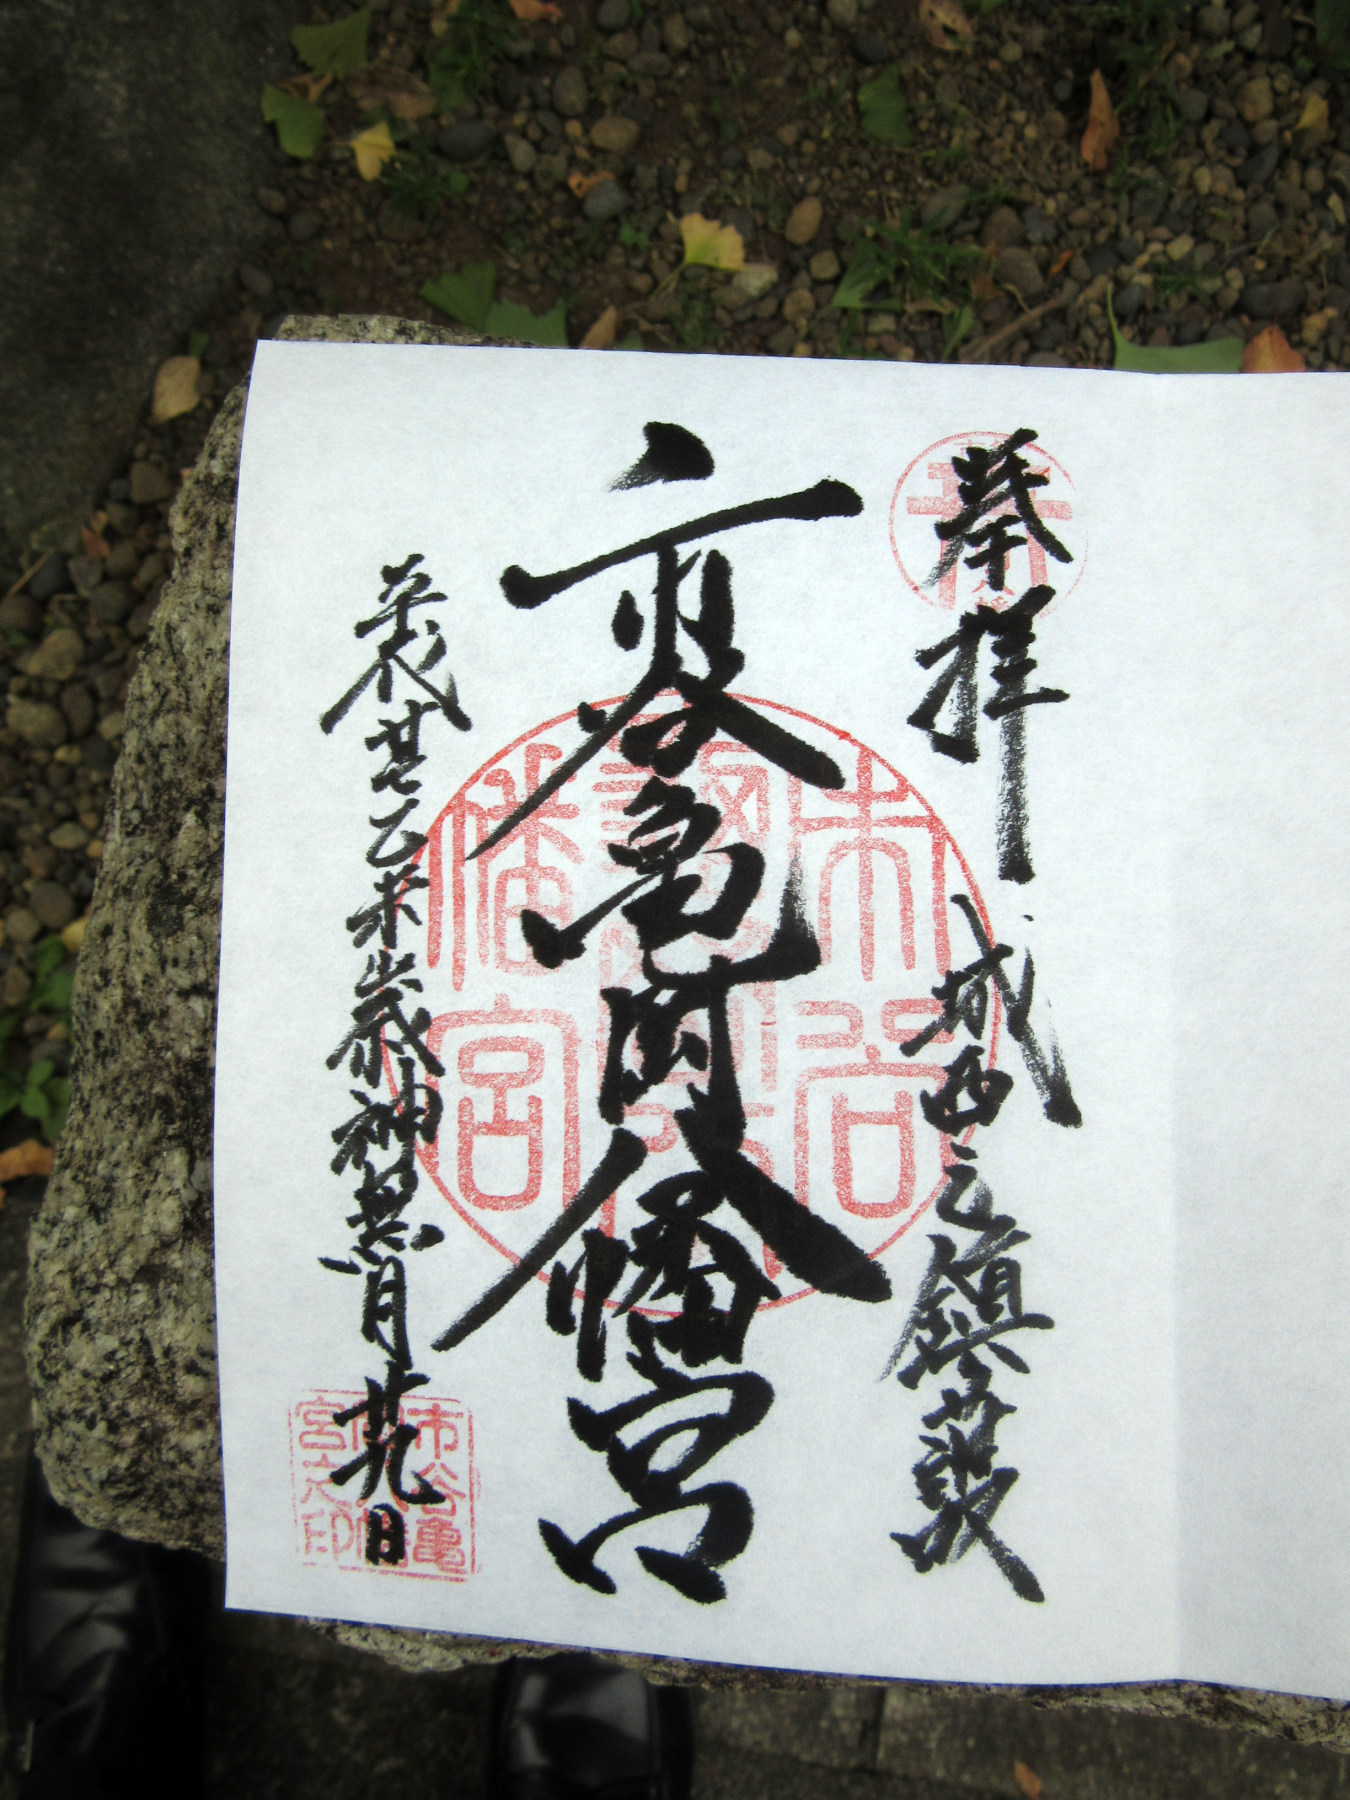 奉拝 城西之鎮護
市谷亀岡八幡宮
平成廿七乙未歳神無月廿九日
市谷
幡宮
市谷亀
岡八幡
宮之印